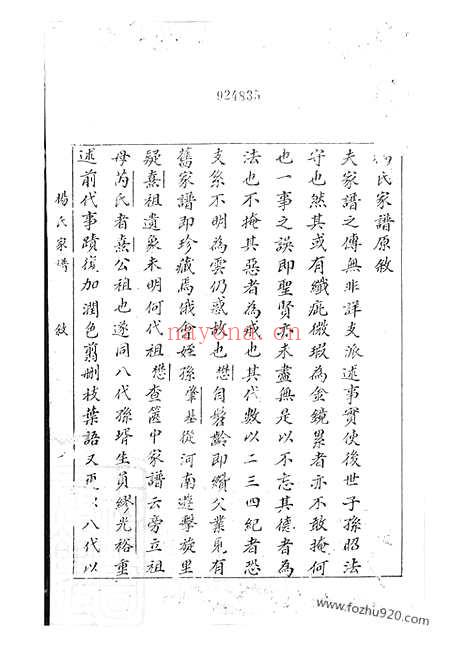 924835
氏家譜原敘
夫家譜之傳無非詳支派述事實使後世子孫昭法
守也然其或有纖疵微瑕為金鏡累者亦不敢掩何
也一事之誤即聖賢亦未盡無是以不忘其德者為
法也不掩其惡者為戒也其代數以二三四紀者恐
支系不明為雲仍惑故也懋自髫齡即纘父業見有
舊家譜即珍藏焉俄會姪孫肇基從河南遊擊旋里
疑熹祖遺象未明何代祖懋查篋中家譜云旁立祖
母芮氏者熹公祖也遂同八代孫壻生員繆光裕重
述前代事蹟復加潤色翦刪枝葉語又再八代以
楊氏家譜 敘
mayona.cn
www.fozhu920.com